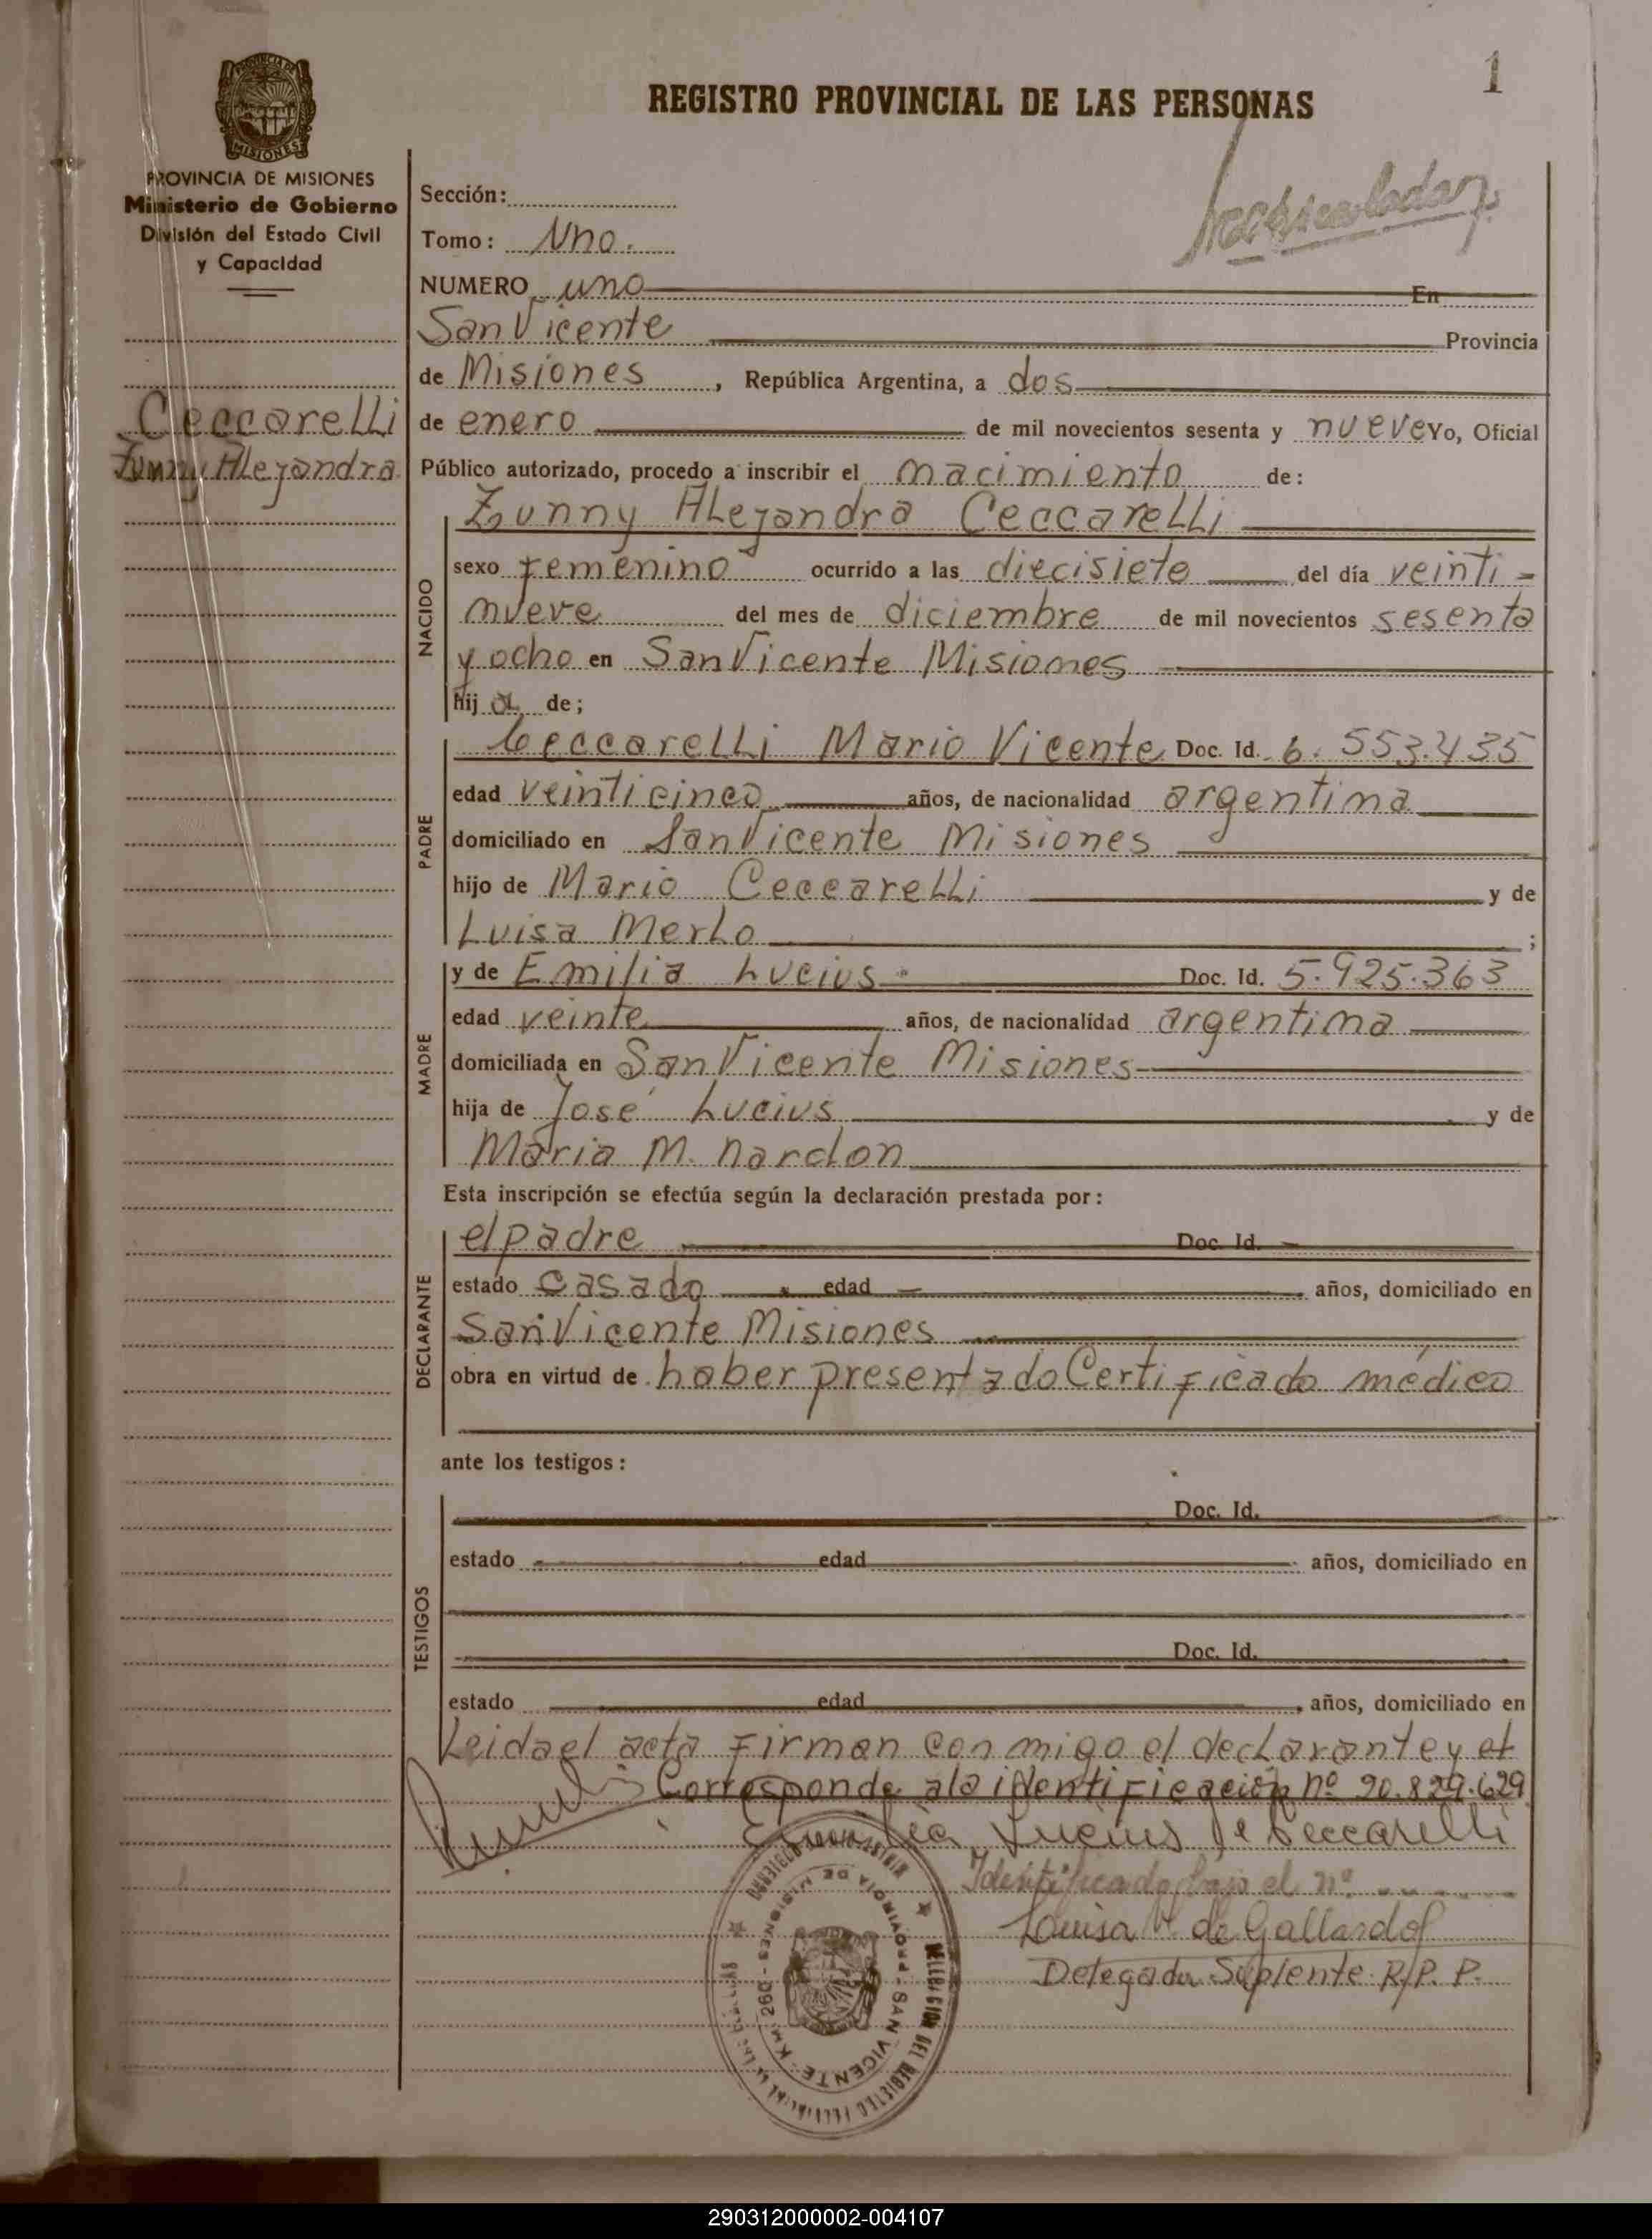 1
REGISTRO PROVINCIAL DE LAS PERSONAS
PROVINCIA DE MISIONES
Ministerio de Gobierno
División del Estado Civil
y Capacidad
Ceccarelli
Zunny Alejandra
Sección:
Tomo: Uno.
NUMERO uno En
San Vicente Provincia
de Misiones, República Argentina, a dos
de enero de mil novecientos sesenta y nueve Yo, Oficial
Público autorizado, procedo a inscribir el nacimiento de:
NACIDO
Zunny Alejandra Ceccarelli
sexo femenino ocurrido a las diecisiete del día veinti-
nueve del mes de diciembre de mil novecientos sesenta
y ocho en San Vicente Misiones
hija de;
PADRE
Ceccarelli Mario Vicente Doc. Id. 6.553.435
edad veinticinco años, de nacionalidad argentina
domiciliado en San Vicente Misiones
hijo de Mario Ceccarelli y de
Luisa Merlo ;
MADRE
y de Emilia Lucius Doc. Id. 5.925.363
edad veinte años, de nacionalidad argentina
domiciliada en San Vicente Misiones
hija de José Lucius y de
Maria M. nardon
Esta inscripción se efectúa según la declaración prestada por:
DECLARANTE
el padre Doc. Id.
estado casado edad años, domiciliado en
San Vicente Misiones
obra en virtud de haber presentado Certificado médico
ante los testigos:
TESTIGOS
Doc. Id.
estado edad años, domiciliado en
Doc. Id.
estado edad años, domiciliado en
Leida el acta firman conmigo el declarante y el
Corresponde a la identificación nº 20.829.629
Emilia Lucius de Ceccarelli
Identificada bajo el nº
Louisa de Gallardo
Delegada Suplente R.P.P.
PROVINCIA DE MISIONES - SAN VICENTE - KM. 260
DELEGACION DEL REGISTRO PROVINCIAL DE LAS PERSONAS
290312000002-004107